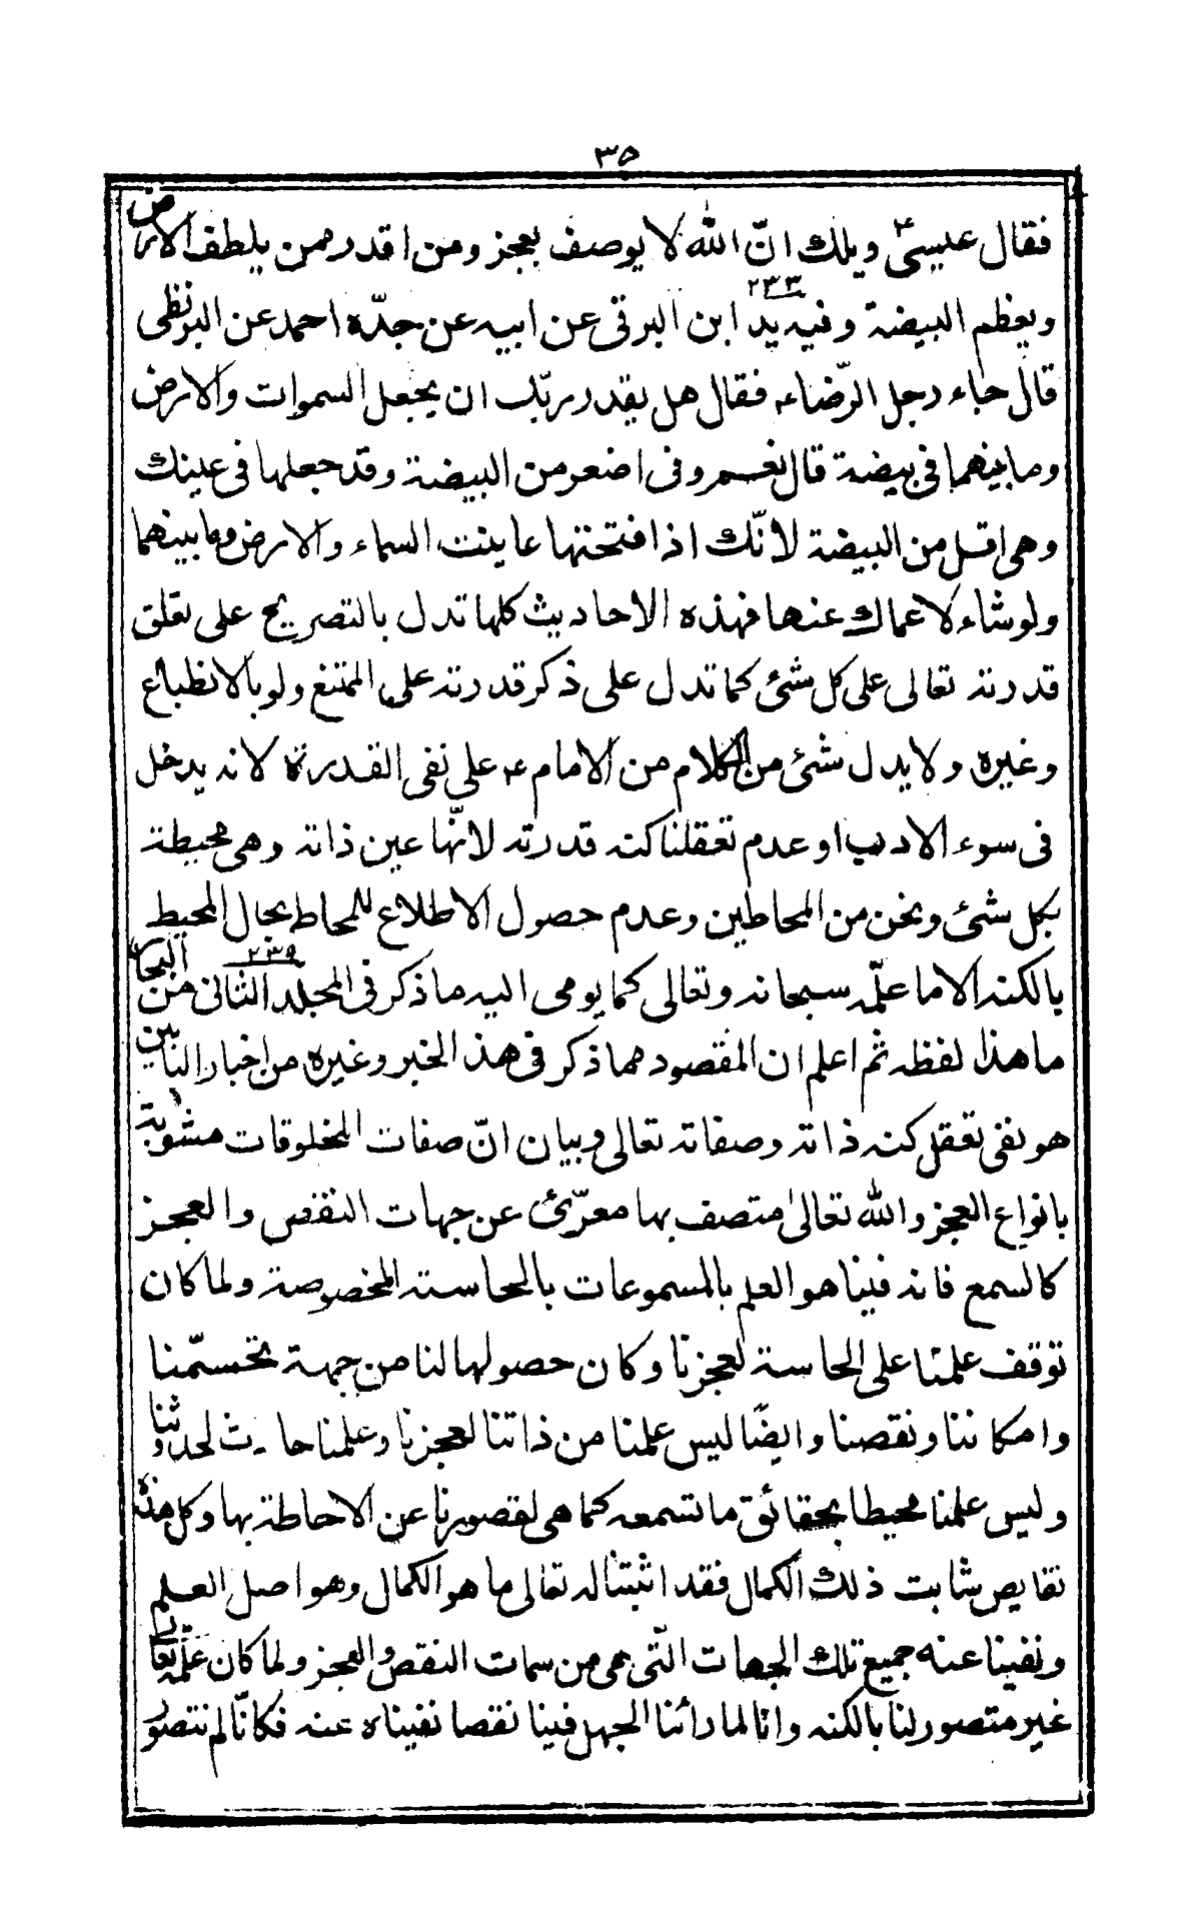 ٣٥
فقال عيسىؑ ويلك انّ الله لا يوصف بعجز ومن اقدر ممن يلطف الارض
ويعظم البيضة وفيه يد ٢٣٣ ابن البرقى عن ابيه عن جدّه احمد عن البزنطى
قال جاء رجل الرّضاء فقال هل يقدر ربّك ان يجعل السموات والارض
وما بينهما فى بيضة قال نعم وفى اضعر من البيضة وقد جعلها فى عينك
وهى اقل من البيضة لانّك اذا فتحتها عاينت السماء والارض وما بينهما
ولو شاء لاعماك عنها فهذه الاحاديث كلها تدل بالتصريح على تعلق
قدرته تعالى على كل شئ كما تدل على ذكر قدرته على الممتنع ولو بالانطباع
وغيره ولا يدل شئ من الكلام من الامام ع على نفى القدرة لانه يدخل
فى سوء الادب او عدم تعقلنا كنه قدرته لانّها عين ذاته وهى محيطة
بكل شئ ونحن من المحاطين وعدم حصول الاطلاع للمحاط بحال المحيط
بالكنه الا ما علّمه سبحانه وتعالى كما يومى اليه ما ذكر فى المجلد الثانى ٢٣٥ من البحار
ما هذا لفظه ثم اعلم ان المقصود مما ذكر فى هذ الخبر وغيره من اخبار البابين
هو نفى تعقل كنه ذاته وصفاته تعالى وبيان انّ صفات المخلوقات مشوبة
بانواع العجز والله تعالى متصف بها معرّئ عن جهات النقص والعجز
كالسمع فانه فينا هو العلم بالمسموعات بالحاسة المخصوصة ولما كان
توقف علمنا على الحاسة لعجزنا وكان حصولها لنا من جهة تجسّمنا
وامكاننا ونقصنا وايضًا ليس علمنا من ذاتنا لعجزنا وعلمنا حادث لحدوثنا
وليس علمنا محيطا بحقائق ما نسمعه كما هى لقصورنا عن الاحاطة بها وكل هذه
نقايص شابت ذلك الكمال فقد اثبتنا له تعالى ما هو الكمال وهو اصل العلم
ونفينا عنه جميع تلك الجهات الّتى هى من سمات النقص والعجز ولما كان علمه تعالى
غير متصور لنا بالكنه وانا لما رأئنا الجهل فينا نقصا نفيناه عنه فكانّا لم نتصور